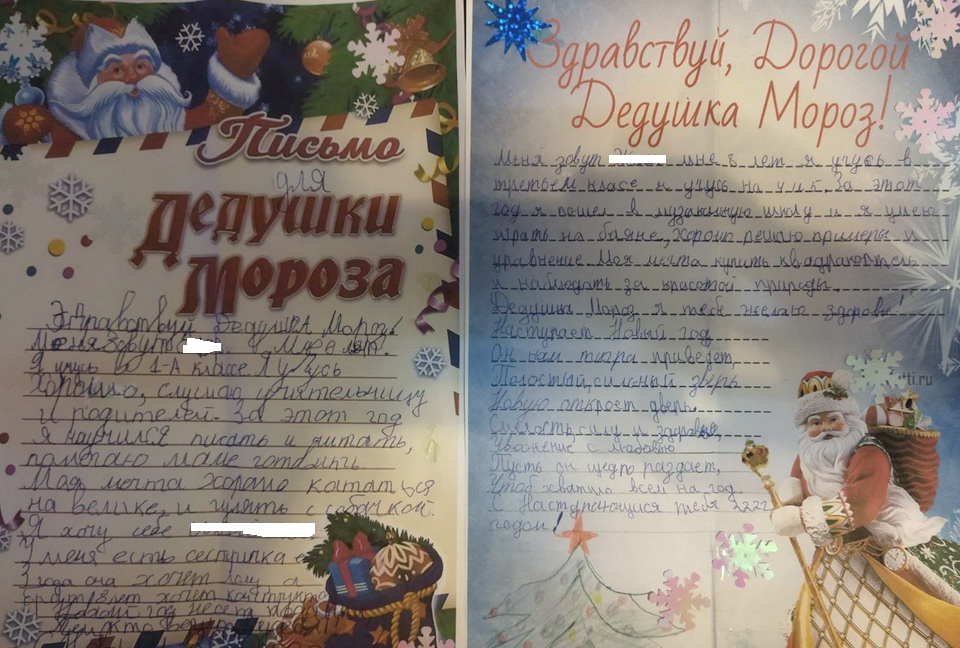 Письмо
для
Дедушки
Мороза
Здравствуй Дедушка Мороз!
Меня зовут
Я учусь во 1-А классе. Я учусь
хорошо, слушаю учительницу
и родителей. За этот год
я научился писать и читать,
помогаю маме готовить.
Моя мечта хорошо кататься
на велике, и гулять с собачкой.
Я хочу себе
У меня есть сестричка
3 года она хочет
хочет
Новый год
Здравствуй, Дорогой
Дедушка Мороз!
Меня зовут мне 8 лет я учусь в
третьем класе и учусь на За этот
год я пошел в музакиную школу и я умею
играть на баяне, хорошо решаю примеры и
уравнение Моя мечта купить квадракоптель
и наблюдать за красотой природы.
Дедушка Мороз я тебе желаю здоровы!
Наступает Новый год
Он нам тигра приведет,
Полостый, сильный зверь
Новую откроет дверь.
Смелость, силу и здоровье,
Уважение с любовью
Пусть он щедро раздает,
Чтоб хватило всем на год.
С Наступающися тебя 2222
годом!
ti.ru